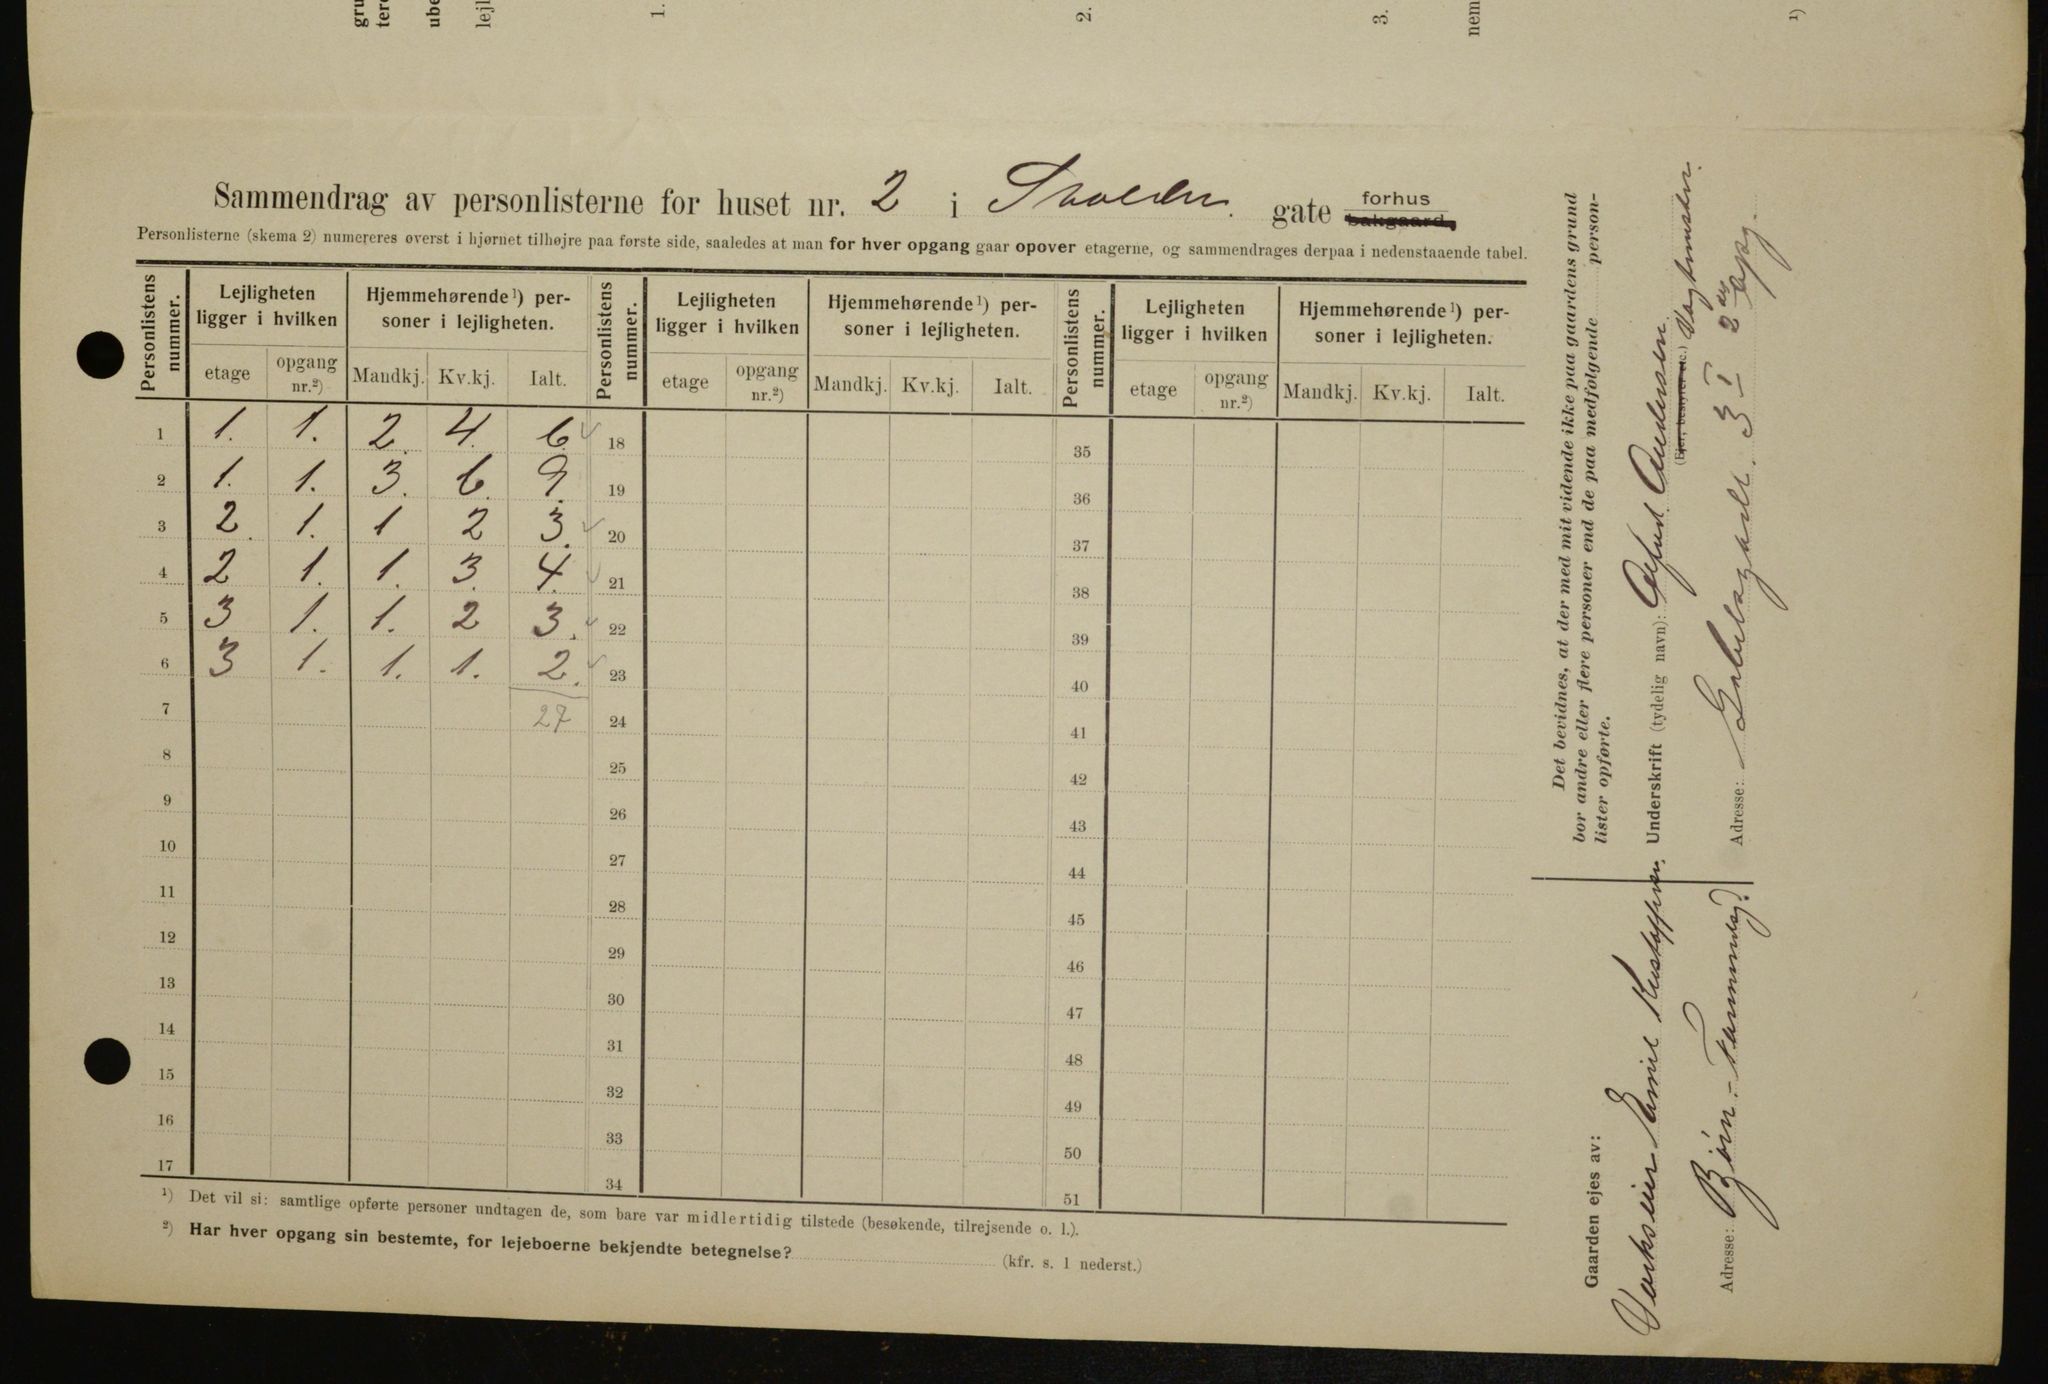 gru
tere
ube
lejl
1.
2.
3.
nem
1)
Sammendrag av personlisterne for huset nr. 2 i gate forhus bakgaard.
Personlisterne (skema 2) numereres øverst i hjørnet tilhøjre paa første side, saaledes at man for hver opgang gaar opover etagerne, og sammendrages derpaa i nedenstaaende tabel.
Personlistens nummer. Lejligheten ligger i hvilken Hjemmehørende¹) personer i lejligheten. Personlistens nummer. Lejligheten ligger i hvilken Hjemmehørende¹) personer i lejligheten. Personlistens nummer. Lejligheten ligger i hvilken Hjemmehørende¹) personer i lejligheten.
etage opgang nr.²) Mandkj. Kv.kj. Ialt. etage opgang nr.²) Mandkj. Kv.kj. Ialt. etage opgang nr.²) Mandkj. Kv.kj. Ialt.
1 1. 1. 2. 4. 6. 18 35
2 1. 1. 3. 6. 9. 19 36
3 2. 1. 1 2 3. 20 37
4 2 1. 1. 3. 4. 21 38
5 3 1. 1. 2 3. 22 39
6 3 1. 1. 1. 2. 23 40
7 27 24 41
8 25 42
9 26 43
10 27 44
11 28 45
12 29 46
13 30 47
14 31 48
15 32 49
16 33 50
17 34 51
¹) Det vil si: samtlige opførte personer undtagen de, som bare var midlertidig tilstede (besøkende, tilrejsende o. l.).
²) Har hver opgang sin bestemte, for lejeboerne bekjendte betegnelse? (kfr. s. 1 nederst.)
Det bevidnes, at der med mit vidende ikke paa gaardens grund
bor andre eller flere personer end de paa medfølgende person-
lister opførte.
Underskrift (tydelig navn): Alfred Andersen. Vagtmester.
(Ejer, bestyrer etc.)
Adresse: Gabelsgade. 3 I 2 opg.
Gaarden ejes av:
Verkseier Emil Kristoffersen.
Adresse: Bjørn -